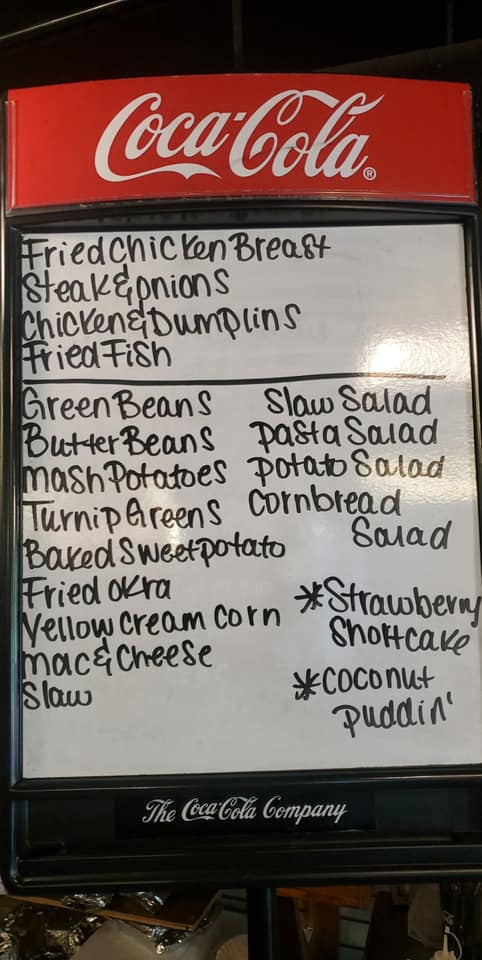 Coca-Cola®
Fried Chicken Breast
Steak & Onions
Chicken & Dumplins
Fried Fish
Green Beans
Butter Beans
Mash Potatoes
Turnip Greens
Baked Sweet potato
Fried okra
Yellow Cream Corn
Mac & Cheese
Slaw
Slaw Salad
Pasta Salad
Potato Salad
Cornbread
Salad
*Strawberry
Shortcake
*Coconut
Puddin'
The Coca-Cola Company